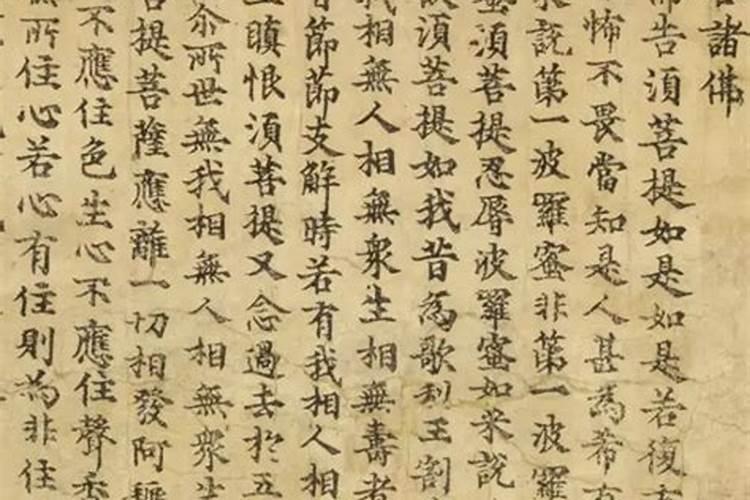 諸佛
佛告須菩提如是如是若復
怖不畏當知是人甚為希有
説第一波羅蜜非第一波羅
蜜須菩提忍辱波羅蜜如来説
須菩提如我昔為歌利王割
我相無人相無衆生相無壽者
昔節節支解時若有我相人相
瞋恨須菩提又念過去於五
尒所世無我相無人相無衆生
菩提菩薩應離一切相發阿
不應住色生心不應住聲香
無所住心若心有住則為非住